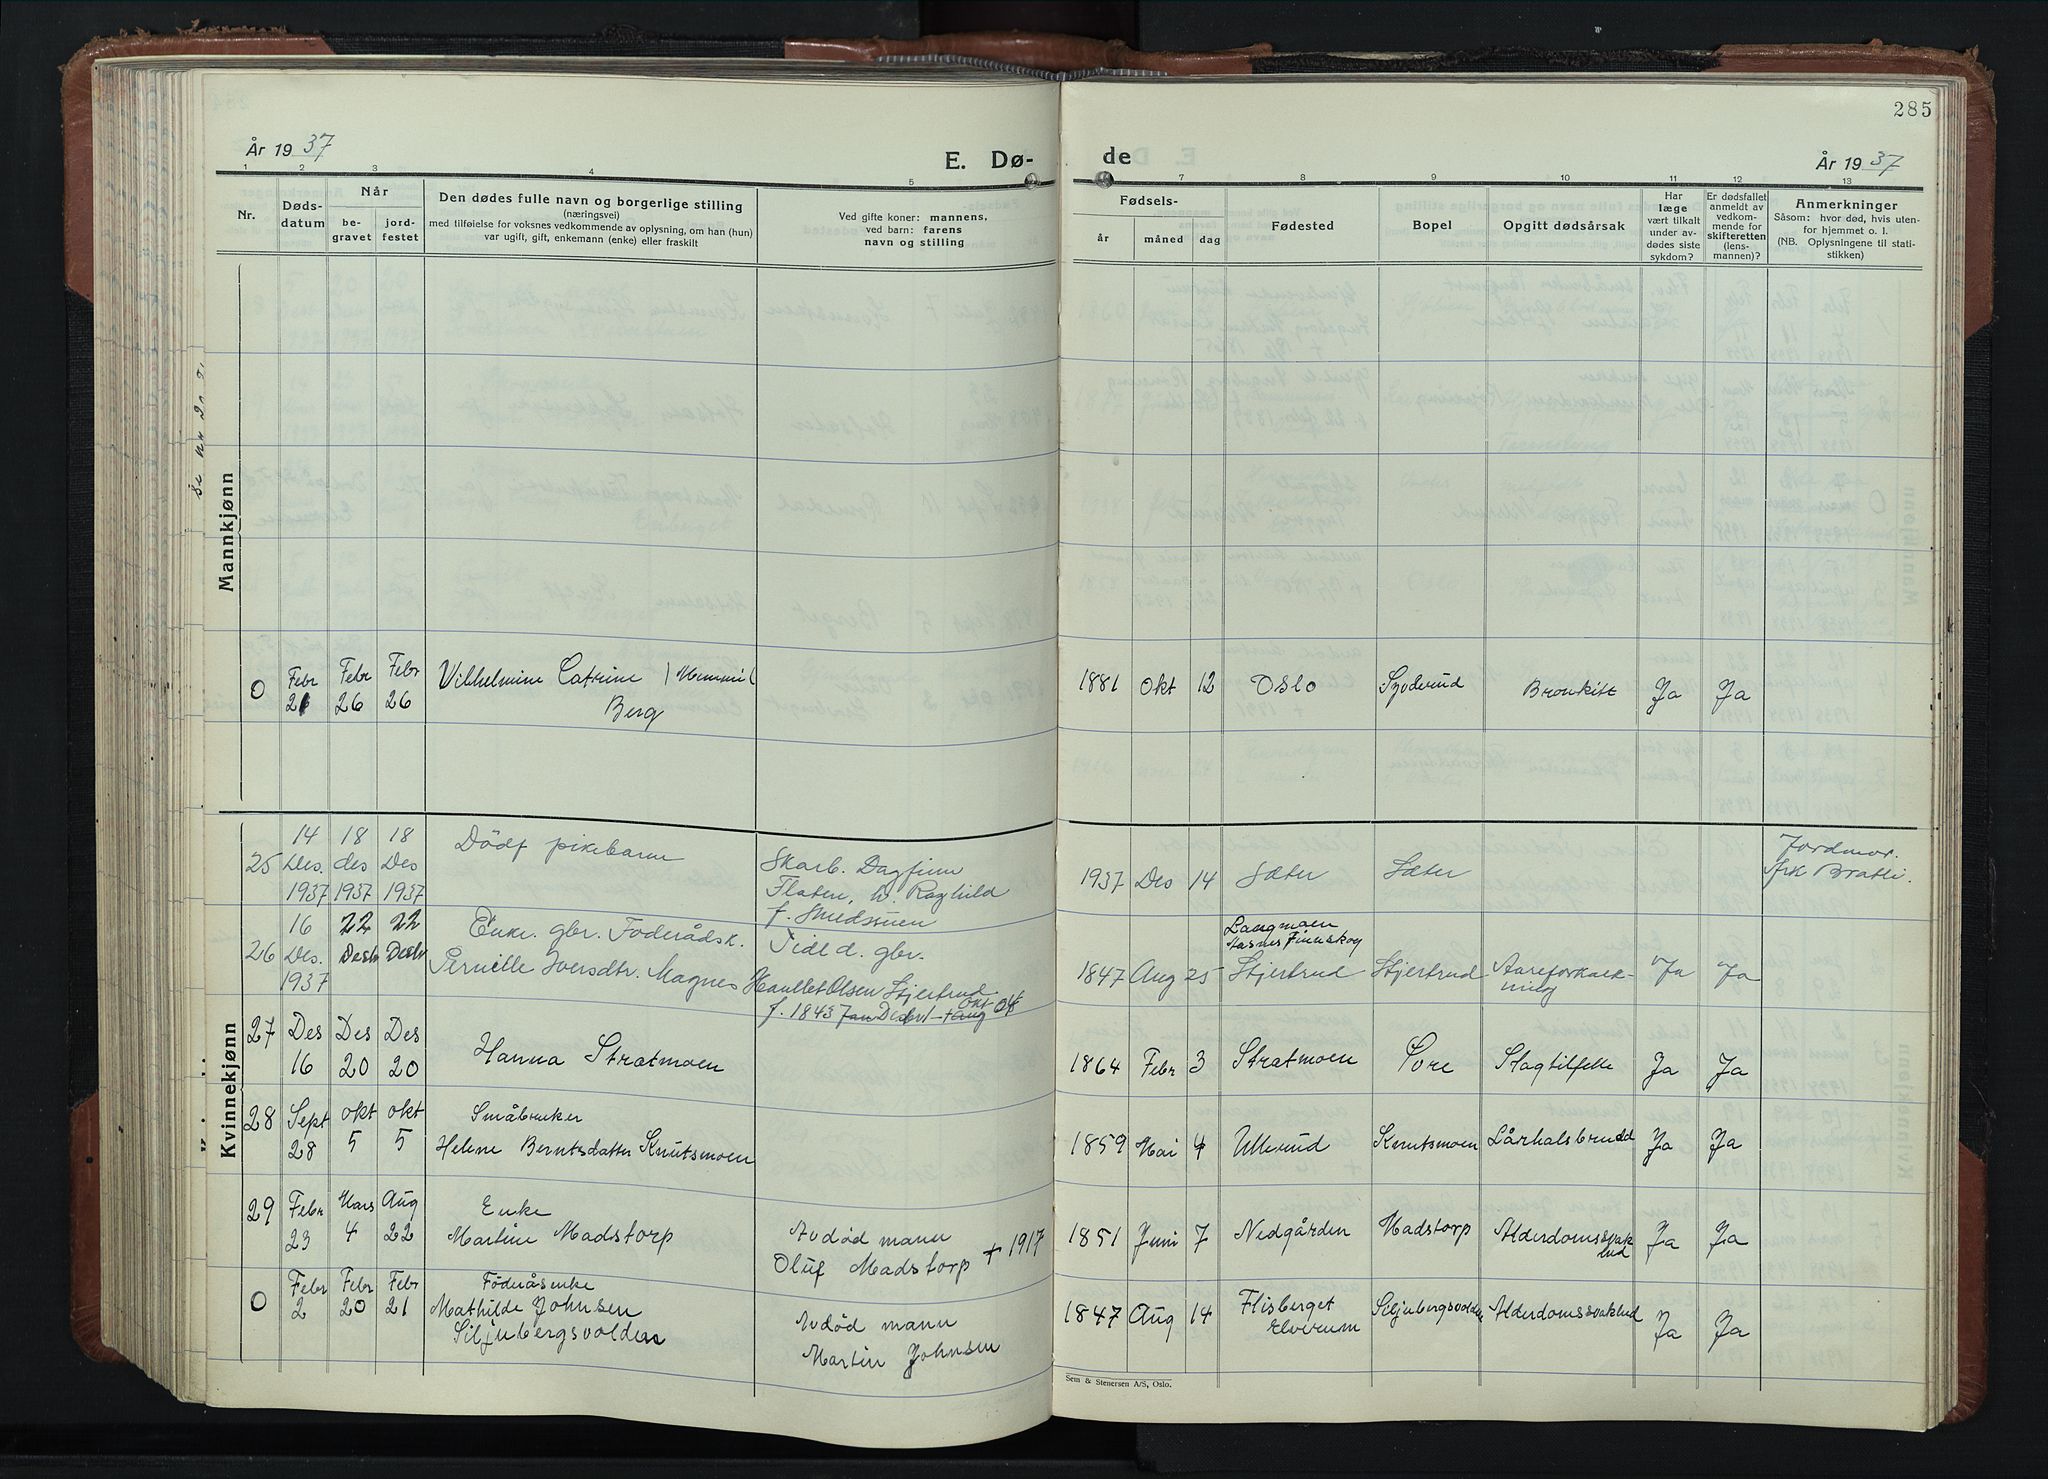 285
År 1937
E. Dø-
de
År 1937
1 2 3 4 5 7 8 9 10 11 12 13
Nr.
Døds-
datum
Når
be-
gravet
jord-
festet
Den dødes fulle navn og borgerlige stilling
(næringsvei)
med tilføielse for voksnes vedkommende av oplysning, om han (hun)
var ugift, gift, enkemann (enke) eller fraskilt
Ved gifte koner: mannens,
ved barn: farens
navn og stilling
Fødsels-
år måned dag
Fødested
Bopel
Opgitt dødsårsak
Har
læge
vært tilkalt
under av-
dødes siste
sykdom?
Er dødsfallet
anmeldt av
vedkom-
mende for
skifteretten
(lens-
mannen)?
Anmerkninger
Såsom: hvor død, hvis uten-
for hjemmet o. l.
(NB. Oplysningene til stati-
stikken)
Mannkjønn
0 Febr 21 Febr 26 Febr 26 Vilhelmine Catrine (Memmi)
Berg
1881 Okt 12 Oslo Bronkitt Ja Ja
Kvinnekjønn
25 14 Des. 1937 18 des 1937 18 Des 1937 Dödf pikebarn
Skarb. Dagfinn
Flaten, h. Raghild
f.
1937 Des 14 Sæter Sæter
Jordmor.
frk Bratli.
26 16 Des. 1937 22 Desbr 22 Desbr Enke. gbr. Föderådsk.
Pernille Iversdtr. Magnes
Tidl d. gbr.
Olsen Stjertrud
f. 1843 Jan Desbr - + aug Okt 04
Langmoen
Aasnes Finnskog
1847 Aug 25 Stjertrud Stjertrud Aareforkalk-
ning Ja Ja
27 Des 16 Des 20 Des 20 Hanna Strætmoen
1864 Febr 3 Strætmoen Sore Slagtilfelle Ja Ja
28 Sept 28 okt 5 okt 5 Småbruker
Helene Berntsdatter Knutsmoen
1859 Mai 4 Ullerud Knutsmoen Lårhalsbrudd Ja Ja
29 Febr 23 Mars 4 Aug 22 Enke
Martine Madstorp
Avdød mann
Oluf Madstorp + 1917
1851 Juni 7 Nedgården Madstorp Alderdomssvak
hed Ja Ja
0 Febr 2 Febr 20 Febr 21 Föderåsenke
Mathilde Johnsen
Siljubergsvolden
Avdød mann
Martin Johnsen
1847 Aug 14 Flisberget
Elverum Siljubergsvolden Alderdomssvakhed Ja Ja
Sem & Stenersen A/S, Oslo.